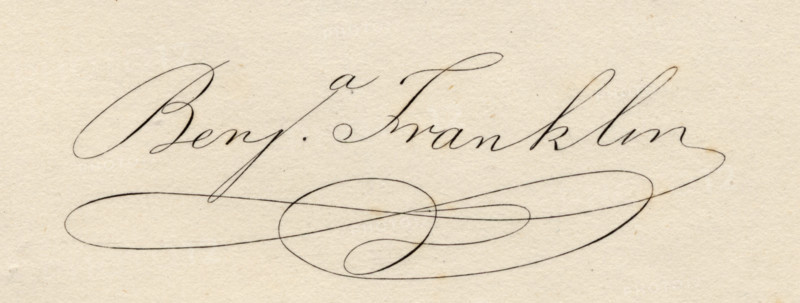 Benjᵃ. Franklin